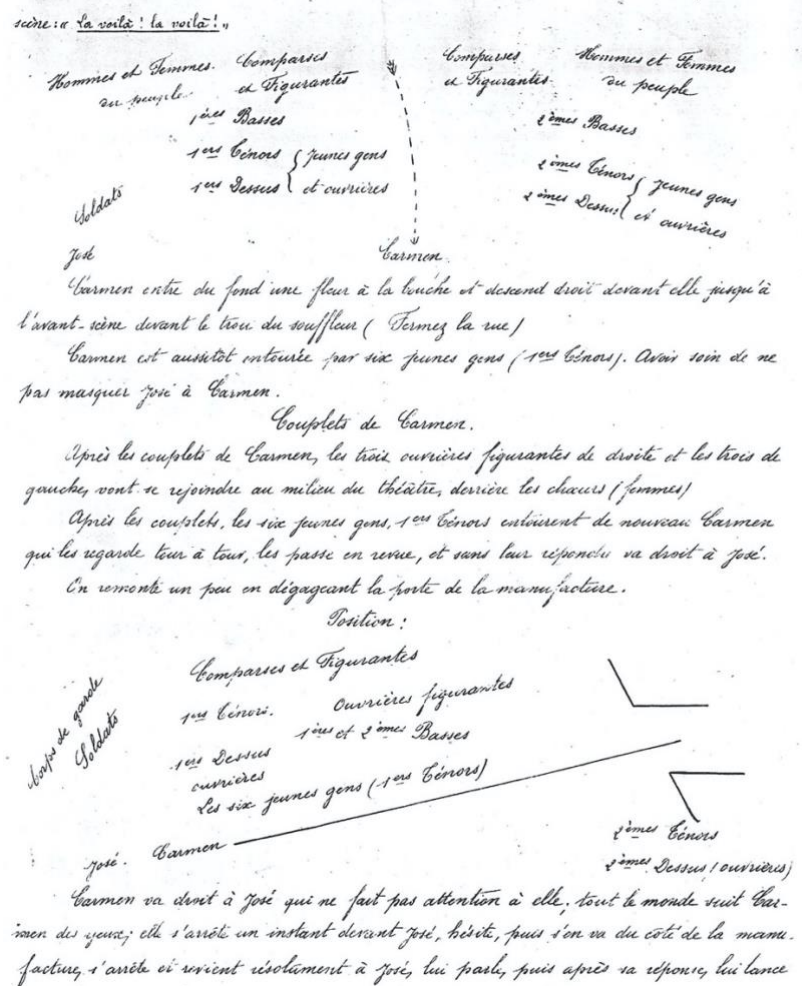 scène : « La voilà ! la voilà ! »
Hommes et Femmes. Comparses Comparses Hommes et Femmes
du peuple. et Figurantes et Figurantes du peuple
1ères Basses 2èmes Basses
1ers Ténors { Jeunes gens 2èmes Ténors { Jeunes gens
1ers Dessus { et ouvrières 2èmes Dessus { et ouvrières
Soldats
José Carmen
Carmen entre du fond une fleur à la bouche et descend droit devant elle jusqu'à
l'avant-scène devant le trou du souffleur ( Fermez la rue )
Carmen est aussitôt entourée par six jeunes gens ( 1ers Ténors ). Avoir soin de ne
pas masquer José à Carmen.
Couplets de Carmen.
Après les couplets de Carmen, les trois ouvrières figurantes de droite et les trois de
gauche, vont se rejoindre au milieu du théâtre, derrière les chœurs ( femmes )
Après les couplets, les six jeunes gens, 1ers Ténors entourent de nouveau Carmen
qui les regarde tour à tour, les passe en revue, et sans leur répondre va droit à José.
On remonte un peu en dégageant la porte de la manufacture.
Position :
Comparses et Figurantes
1ers Ténors. Ouvrières figurantes
1ères et 2èmes Basses
Corps de garde
Soldats
1ers Dessus
ouvrières
Les six jeunes gens ( 1ers Ténors )
José. Carmen
2èmes Ténors
2èmes Dessus ( ouvrières )
Carmen va droit à José qui ne fait pas attention à elle ; tout le monde suit Car-
men des yeux ; elle s'arrête un instant devant José, hésite, puis s'en va du côté de la manu-
facture, s'arrête et revient résolument à José, lui parle, puis après sa réponse, lui lance